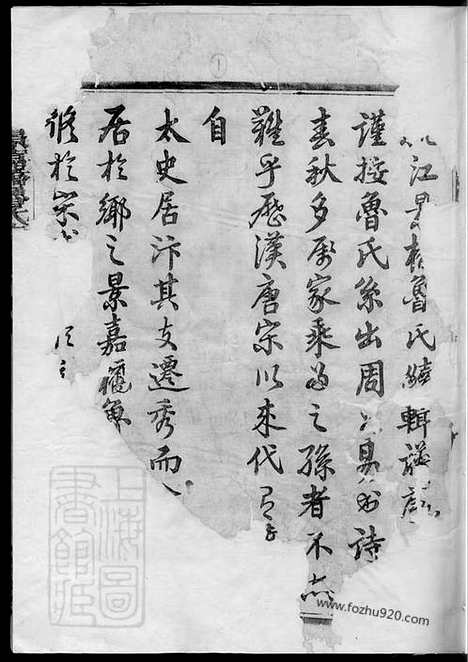 江魯氏續輯譜
謹按魯氏系出周易詩
春秋多家乘之孫者不亦
難乎歷漢唐宋以来代有
自
太史居汴其支遷秀而
居於鄉之景嘉
於宋
上海圖
書館藏
1
www.fozhu920.com